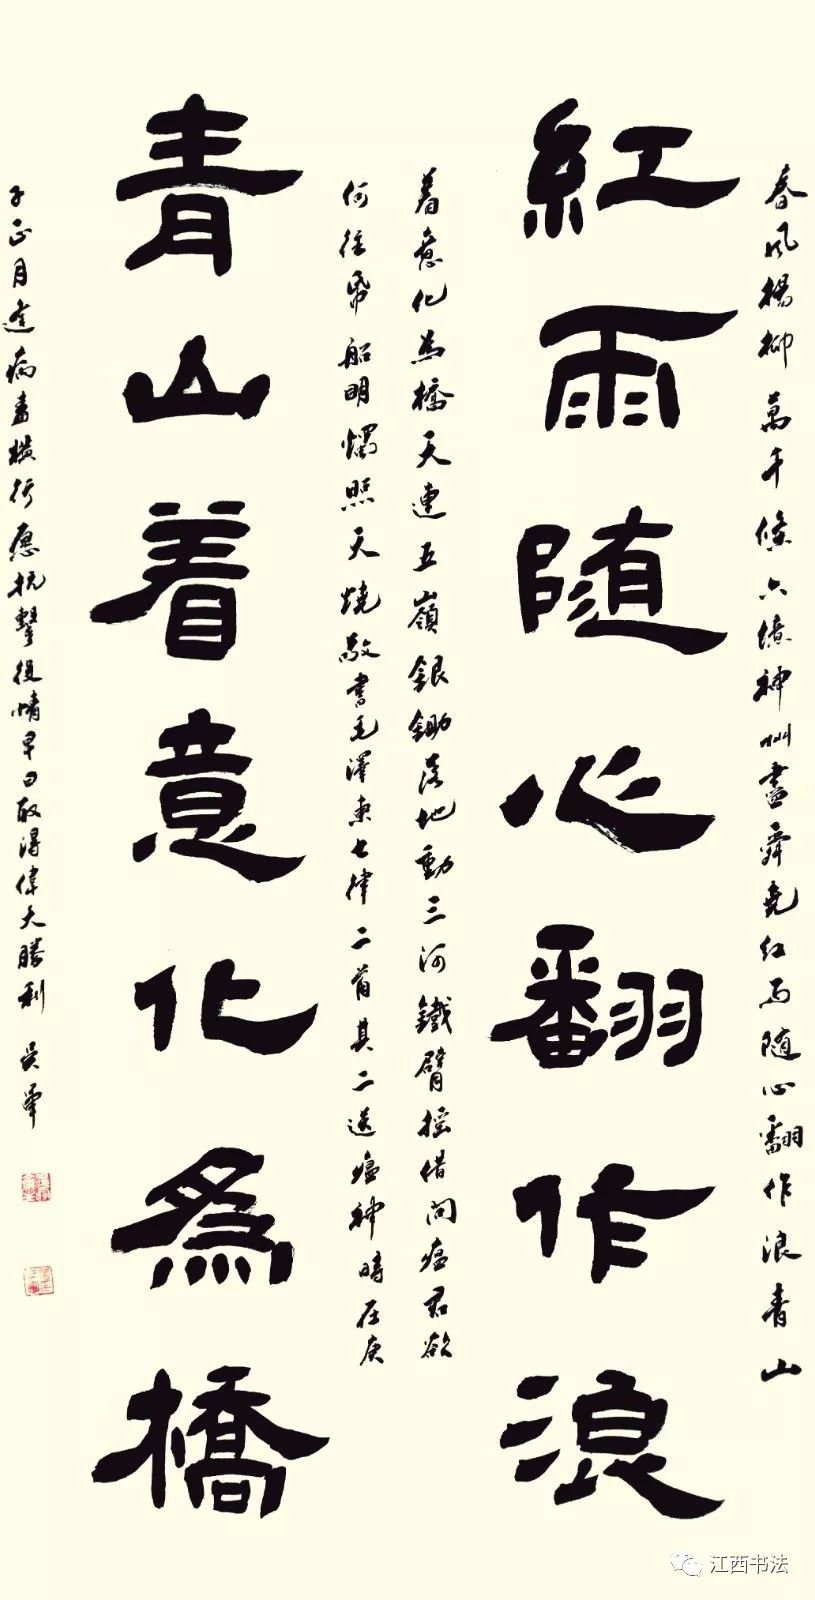 春風楊柳萬千條六億神州盡舜堯红雨随心翻作浪青山
紅雨随心翻作浪
着意化為橋天連五嶺銀鋤落地動三河鐵臂摇借問瘟君欲
何往帋船明燭照天燒敬書毛澤東七律二首其二送瘟神時在庚
青山着意化為橋
子正月逢病毒横行愿抗擊疫情早日取得偉大勝利 吴
江西书法